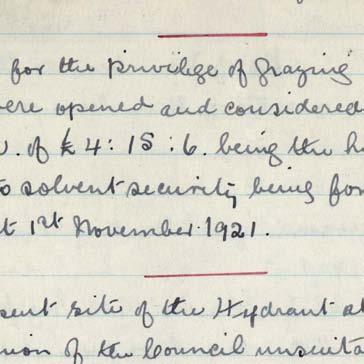 for the privilege of grazing
were opened and considered
. of £4:15:6. being the h
to solvent security being for
t 1st November 1921.
sent site of the Hydrant at
nion of the Council unsuita